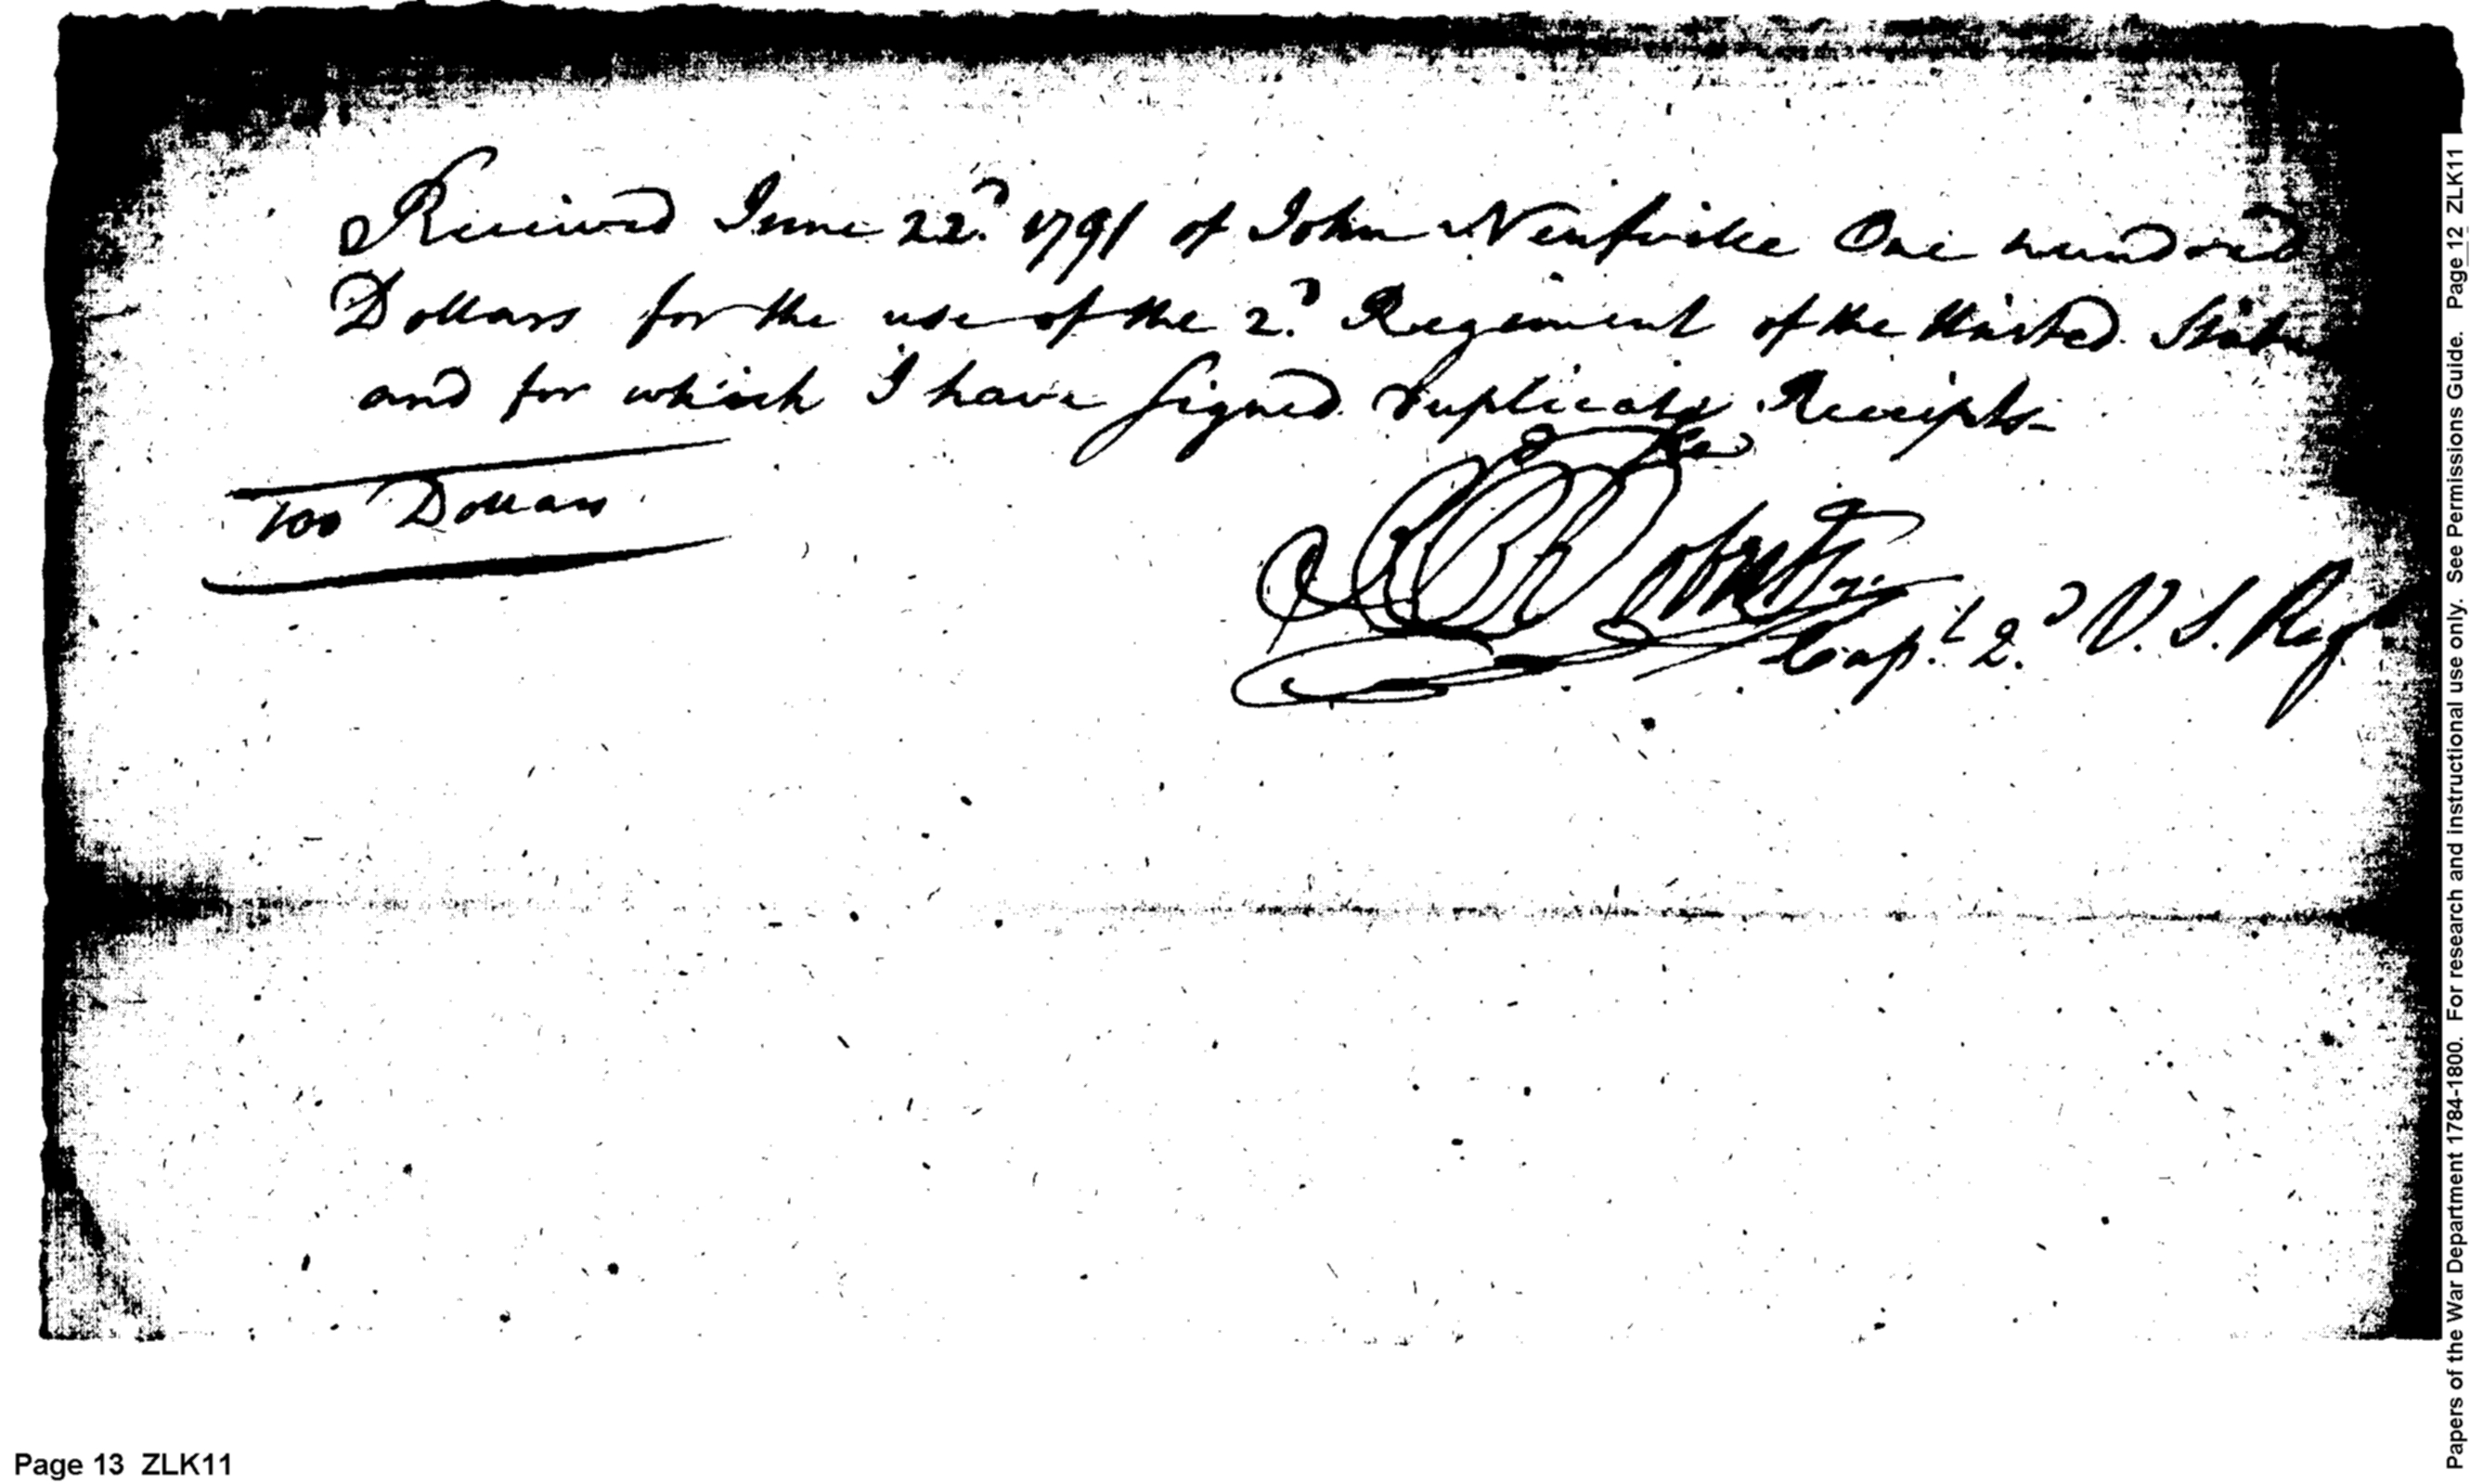 Received June 22d. 1791 of John Neufville One hundred
Dollars for the use of the 2d. Regiment of the United States
and for which I have signed duplicate Receipts
100 Dollars
Capt. 2d. U.S. Reg
Page 13 ZLK11
Papers of the War Department 1784-1800. For research and instructional use only. See Permissions Guide. Page_12 ZLK11